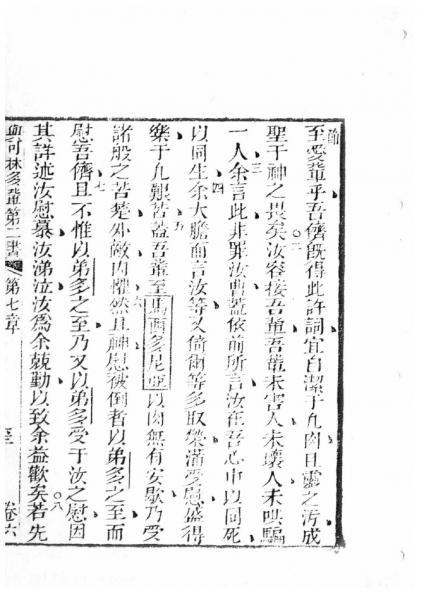 節
至愛輩乎吾儕既得此許詞宜自潔于凡肉且靈之污成
二
聖于神之畏矣汝容接吾輩吾輩未害人未壞人未哄騙
三
一人余言此非罪汝曹蓋依前所言汝在吾心中以同死
四
以同生余大膽面言汝等又倚爾等多取榮滿受慰盛得
五
樂于凡艱苦蓋吾輩至馬西多尼亞以肉無有安歇乃受
六
諸般之苦楚外敵內懼然且神慰被倒者以弟多之至而
七
慰吾儕且不惟以弟多之至乃又以弟多受于汝之慰因
八
其詳述汝慰慕汝涕泣汝為余兢勤以致余益歡矣若先
可林多輩第二書 第七章 卷六